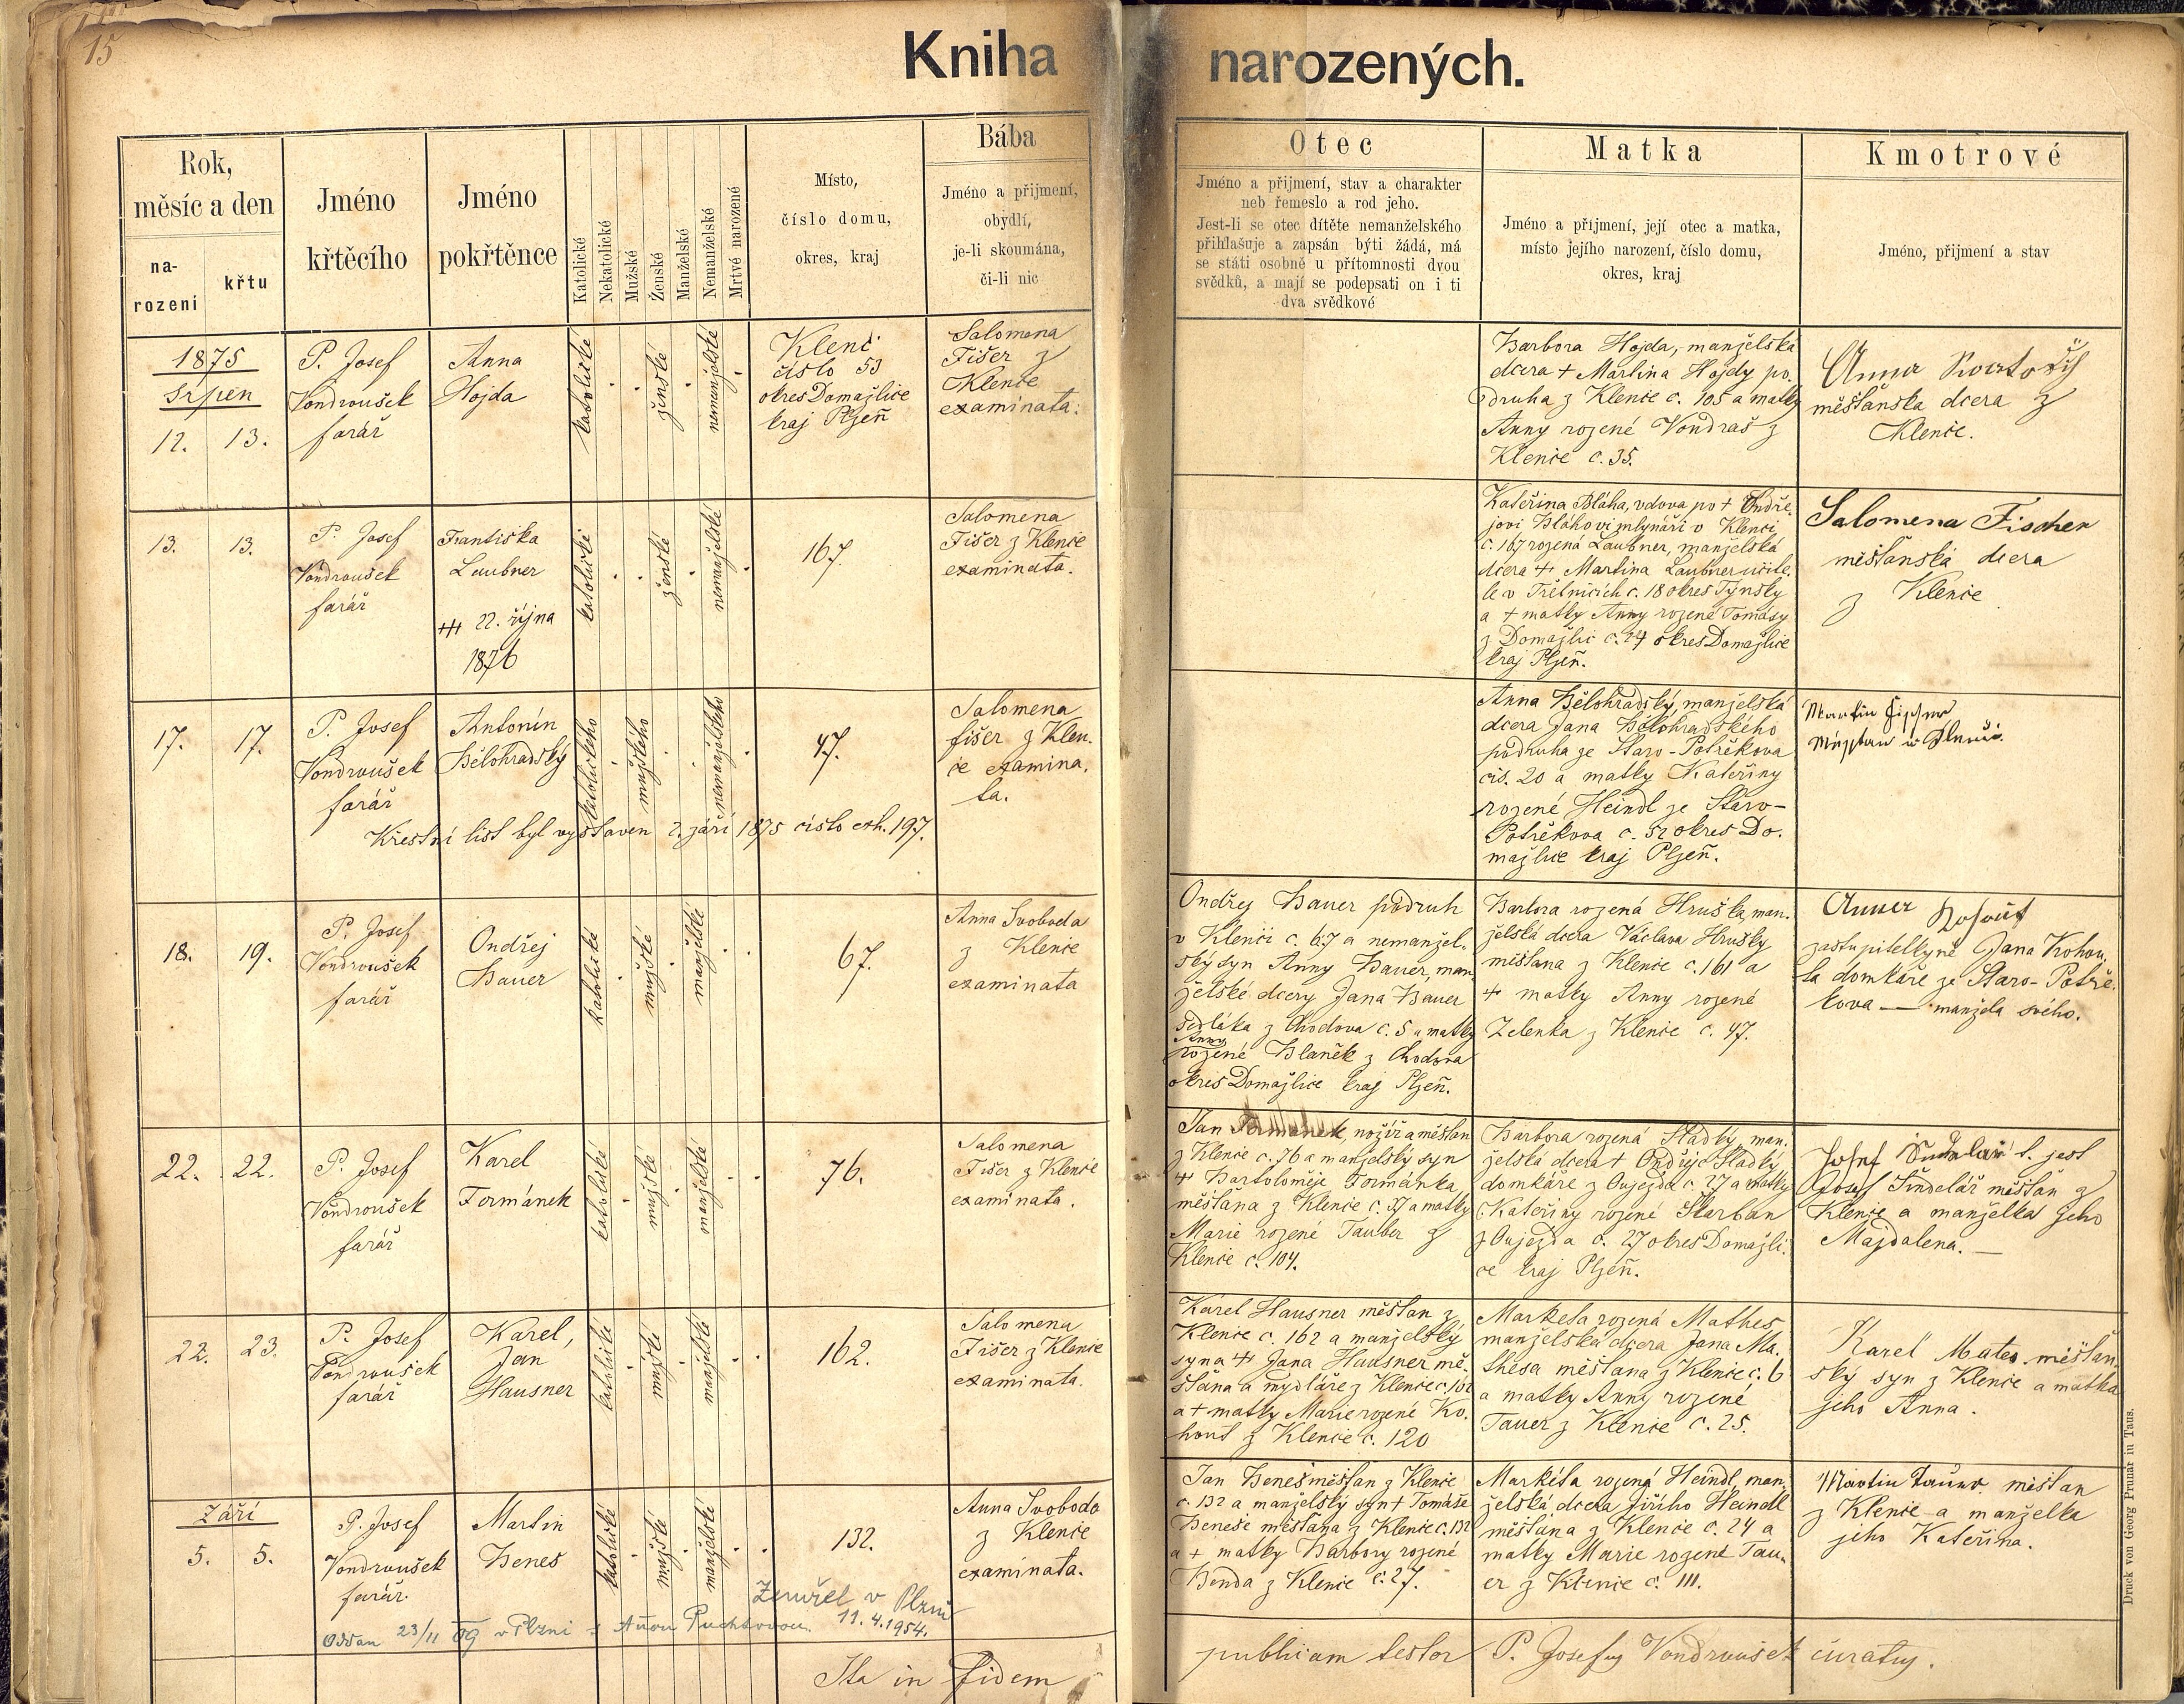 15
Kniha narozených.
Rok,
měsíc a den
na-
rození
křtu
Jméno
křtěcího
Jméno
pokřtěnce
Katolické
Nekatolické
Mužské
Ženské
Manželské
Nemanželské
Mrtvé narozené
Místo,
číslo domu,
okres, kraj
Bába
Jméno a přijmení,
obydlí,
je-li skoumána,
či-li nic
Otec
Jméno a přijmení, stav a charakter
neb řemeslo a rod jeho.
Jest-li se otec dítěte nemanželského
přihlašuje a zapsán býti žádá, má
se státi osobně u přítomnosti dvou
svědků, a mají se podepsati on i ti
dva svědkové
Matka
Jméno a přijmení, její otec a matka,
místo jejího narození, číslo domu,
okres, kraj
Kmotrové
Jméno, přijmení a stav
1875
Srpen
12. 13.
P. Josef
Vondroušek
farář
Anna
Hojda
katolické
ženské
nemanželské
Klenč
číslo 53
okres Domažlice
kraj Plzeň
Salomena
Fišer z
Klenče
examinata.
Barbora Hojda, manželská
dcera + Martina Hojdy po-
druha z Klenče č. 105 a matky
Anny rozené Vondraš z
Klenče č. 35.
Anna
měšťanska dcera z
Klenče.
13. 13.
P. Josef
Vondroušek
farář
Františka
Laubner
+++ 22. října
1876
katolické
ženské
nemanželské
167.
Salomena
Fišer z Klenče
examinata.
Kateřina Bláha, vdova po + Ondře-
jovi Bláhovi mlynáři v Klenči
č. 167 rozená Laubner, manželská
dcera + Martina Laubner učite-
le v Třetnicích č. 18 okres Týnský
a + matky Anny rozené Tomásy
z Domažlic č. 24 okres Domažlice
kraj Plzeň.
Salomena Fischer
měšťanská dcera
z Klenče
17. 17.
P. Josef
Vondroušek
farář
Antonín
Bělohradský
katolického
mužského
nemanželského
47.
Salomena
fišer z Klen-
če examina-
ta.
Křestní list byl vystaven 2. září 1875 číslo exh. 197.
Anna Bělohradský, manželská
dcera Jana Bělohradského
podruha ze Staro-Postřekova
čís. 20 a matky Kateřiny
rozené Heindl ze Staro-
Postřekova č. 52 okres Do-
mažlice kraj Plzeň.
Martin Fischer
18. 19.
P. Josef
Vondroušek
farář
Ondřej
Bauer
katolické
mužské
manželské
67.
Anna Svoboda
z Klenče
examinata
Ondřej Bauer podruh
v Klenči č. 67 a nemanžel-
ský syn Anny Bauer, man-
želské dcery Jana Bauer
sedláka z Chodova č. 5 a matky
Anny
rozené Blaněk z Chodova
okres Domažlice kraj Plzeň.
Barbora rozená Hruška, man-
želská dcera Václava Hrušky
měšťana z Klenče č. 161 a
+ matky Anny rozené
Zelenka z Klenče č. 47.
Anna Kohout
zastupitelkyně Jana Kohou-
ta domkáře ze Staro-Postře-
kova — manžela svého.
22. 22.
P. Josef
Vondroušek
farář
Karel
Formánek
katolické
mužské
manželské
76.
Salomena
Fišer z Klenče
examinata.
Jan Formánek, nožíř a měšťan
z Klenče č. 76 a manželský syn
+ Bartoloměje Formánka
měšťana z Klenče č. 37 a matky
Marie rozené Tauber z
Klenče č. 104.
Barbora rozená Sladký, man-
želská dcera + Ondřeje Sladký
domkáře z Oujezda č. 27 a matky
Kateřiny rozené Škarban
z Oujezda č. 27 okres Domažli-
ce kraj Plzeň.
Josef Šindelář t. jest
Josef Šindelář měšťan z
Klenče a manželka jeho
Majdalena. —
22. 23.
P. Josef
Vondroušek
farář
Karel,
Jan
Hausner
katolické
mužské
manželské
162.
Salomena
Fišer z Klenče
examinata.
Karel Hausner měšťan z
Klenče č. 162 a manželský
syna + Jana Hausner mě-
šťana a mydláře z Klenče č. 162
a + matky Marie rozené Ko-
hout z Klenče č. 120
Markéta rozená Mathes
manželská dcera Jana Ma-
thesa měšťana z Klenče č. 6
a matky Anny rozené
Tauer z Klenče č. 25.
Karel Mates měšťan-
ský syn z Klenče a matka
jeho Anna.
Září
5. 5.
P. Josef
Vondroušek
farář.
Martin
Beneš
katolické
mužské
manželské
132.
Anna Svoboda
z Klenče
examinata.
Zemřel v Plzni
11.4.1954.
Oddán 23/11 09 v Plzni s Annou
Jan Beneš měšťan z Klenče
č. 132 a manželský syn + Tomáše
Beneše měšťana z Klenče č. 132
a + matky Barbory rozené
Benda z Klenče č. 27.
Markéta rozená Heindl, man-
želská dcera Jiřího Heindl
měšťana z Klenče č. 24 a
matky Marie rozené Tau-
er z Klenče č. 111.
Martin Tauer měšťan
z Klenče a manželka
jeho Kateřina.
Ita in fidem publicam testor P. Josefus Vondroušek curatus.
Druck von Georg Prunar in Taus.